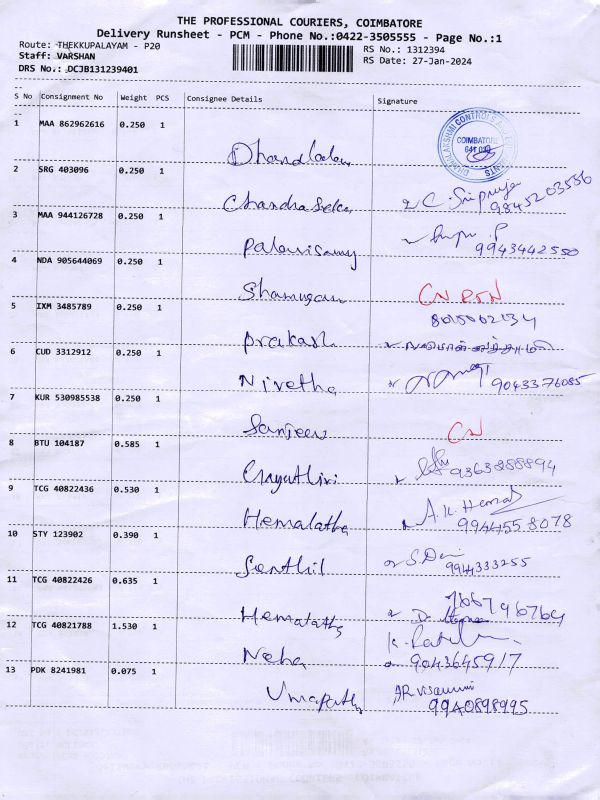 THE PROFESSIONAL COURIERS, COIMBATORE
Delivery Runsheet - PCM - Phone No.:0422-3505555 - Page No.:1
Route: THEKKUPALAYAM - P20
RS No.: 1312394
Staff: VARSHAN
RS Date: 27-Jan-2024
DRS No.: DCJB131239401
S No Consignment No Weight PCS Consignee Details Signature
1 MAA 862962616 0.250 1
COIMBATORE
2 SRG 403096 0.250 1
Chandrasekar C. Sripriya
9845203556
3 MAA 944126728 0.250 1
Palanisamy 9943442550
4 NDA 905644069 0.250 1
Shanmugam CN RTN
5 IXM 3485789 0.250 1
8015002134
Prakash
6 CUD 3312912 0.250 1
Nivetha 9043376085
7 KUR 530985538 0.250 1
Sanjeev CN
8 BTU 104187 0.585 1
Gayathiri 9363888894
9 TCG 40822436 0.530 1
Hemalatha A.K. Hemab
9944558078
10 STY 123902 0.390 1
Senthil S. Devi
9944333255
11 TCG 40822426 0.635 1
Hemalatha 7667796764
12 TCG 40821788 1.530 1
Neha 9043645917
13 PDK 8241981 0.075 1
Umapathy
9940898995